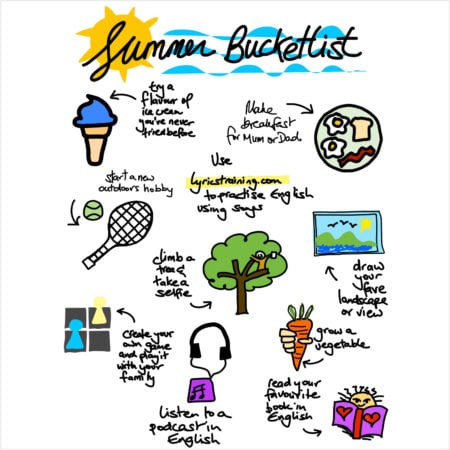 Summer Bucketlist
try a
flavour of
ice cream
you've never
tried before
Make
breakfast
for Mum or Dad
Use
lyricstraining.com
to practise English
using songs
start a new
outdoors hobby
climb a
tree &
take a
selfie
draw
your
fave
landscape
or view
create your
own game
and play it
with your
family
grow a
vegetable
listen to a
podcast in
English
read your
favourite
book in
English